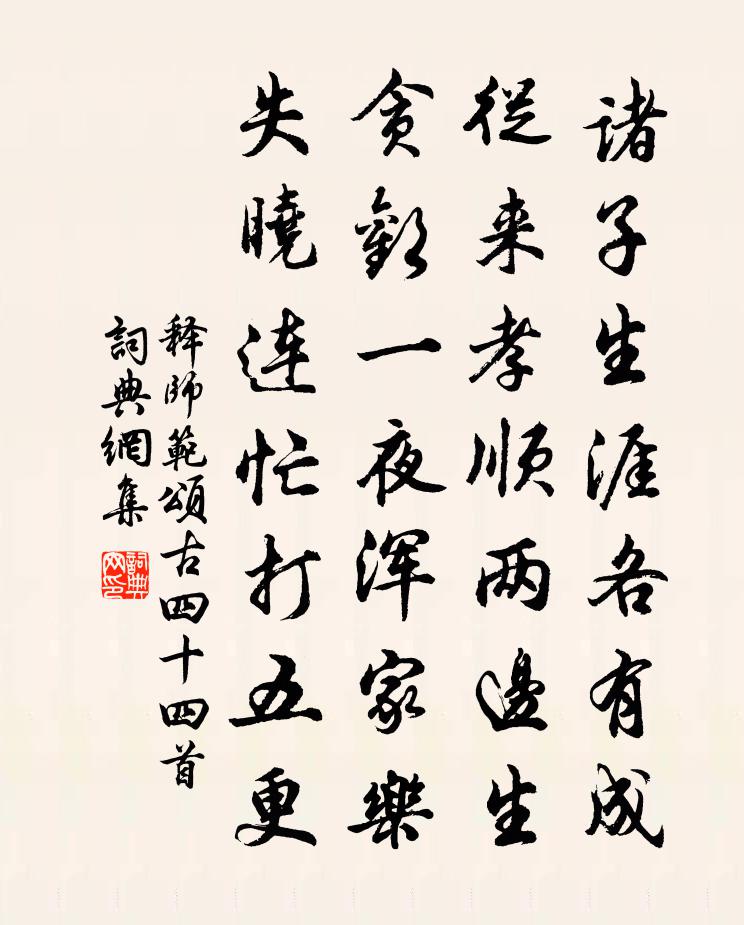 諸子生涯各有成
從來孝順两邊生
貪歡一夜渾家樂
失曉連忙打五更
释師範頌古四十四首
詞典網集
詞典網印